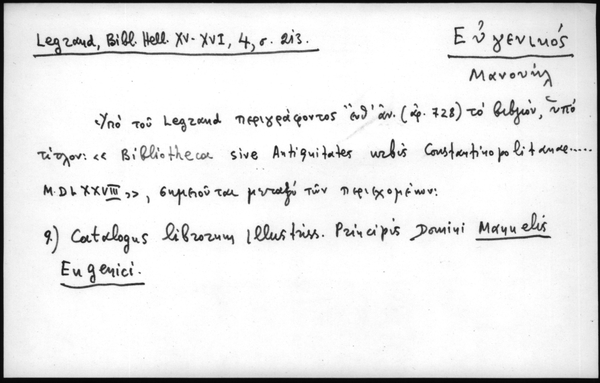 Legrand, Bibl. Hell. XV-XVI, 4, σ. 213.
Εὐγενικός
Μανουήλ
Ὑπό τοῦ Legrand περιγράφοντος ἐνθ' ἀν. (ἀρ. 728) τό βιβλίον, ὑπό
τίτλον: << Bibliotheca sive Antiquitates urbis Constantinopolitanae.....
M.DLXXVIII >>, σημειοῦται μεταξύ τῶν περιεχομένων:
2.) Catalogus librorum Illustriss. Principis Domini Manuelis
Eugenici.